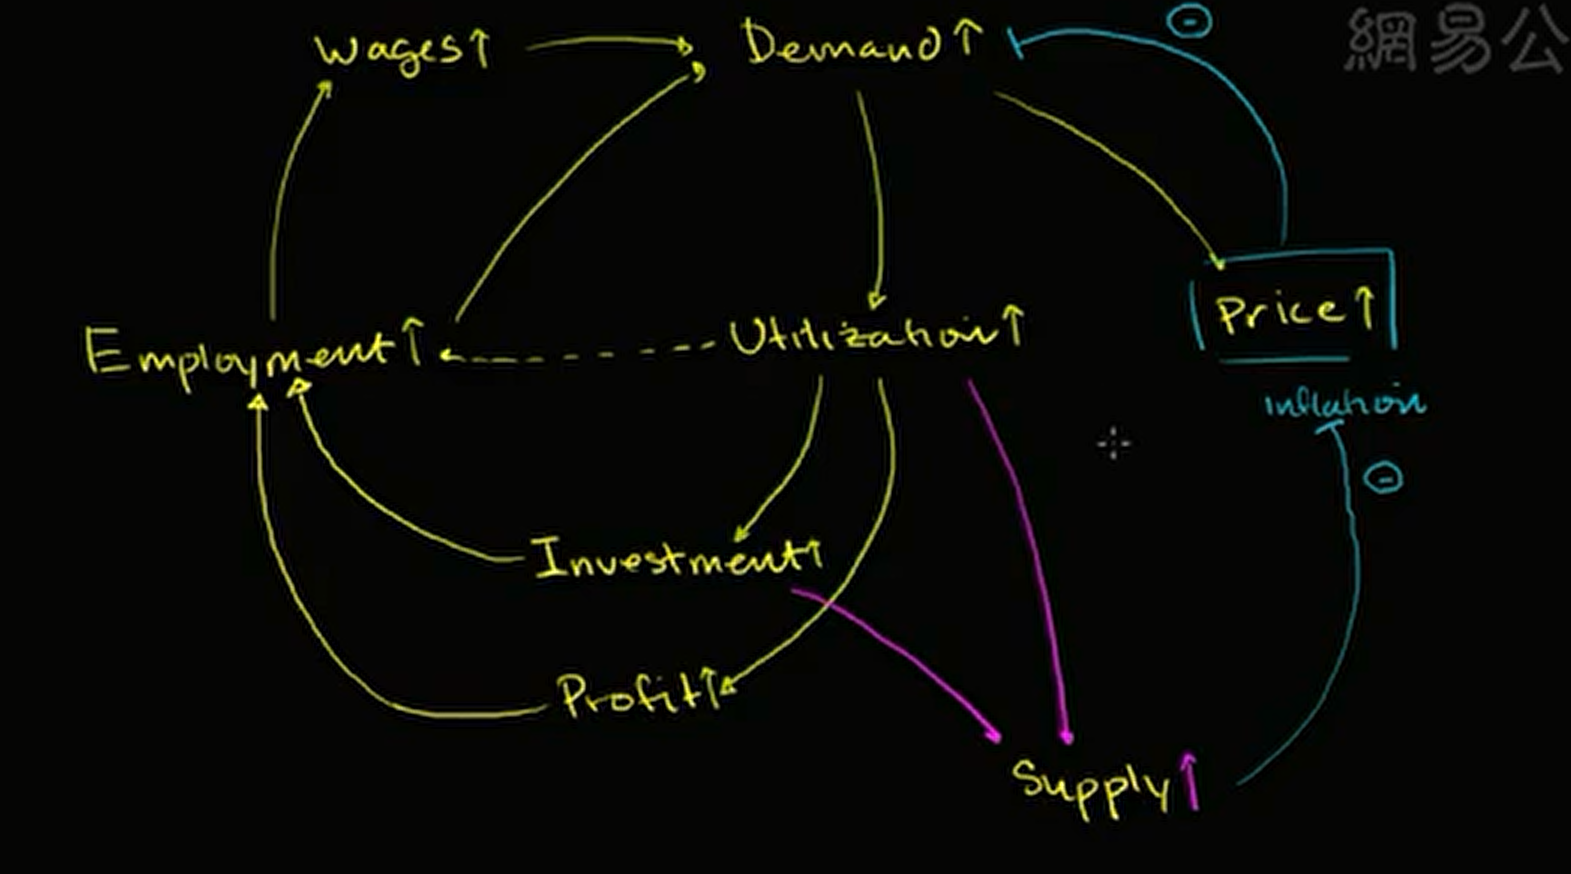 Wages↑
Demand↑
⊖
網易公
Employment↑
Utilization↑
Price↑
inflation
⊖
Investment↑
Profit↑
Supply↑